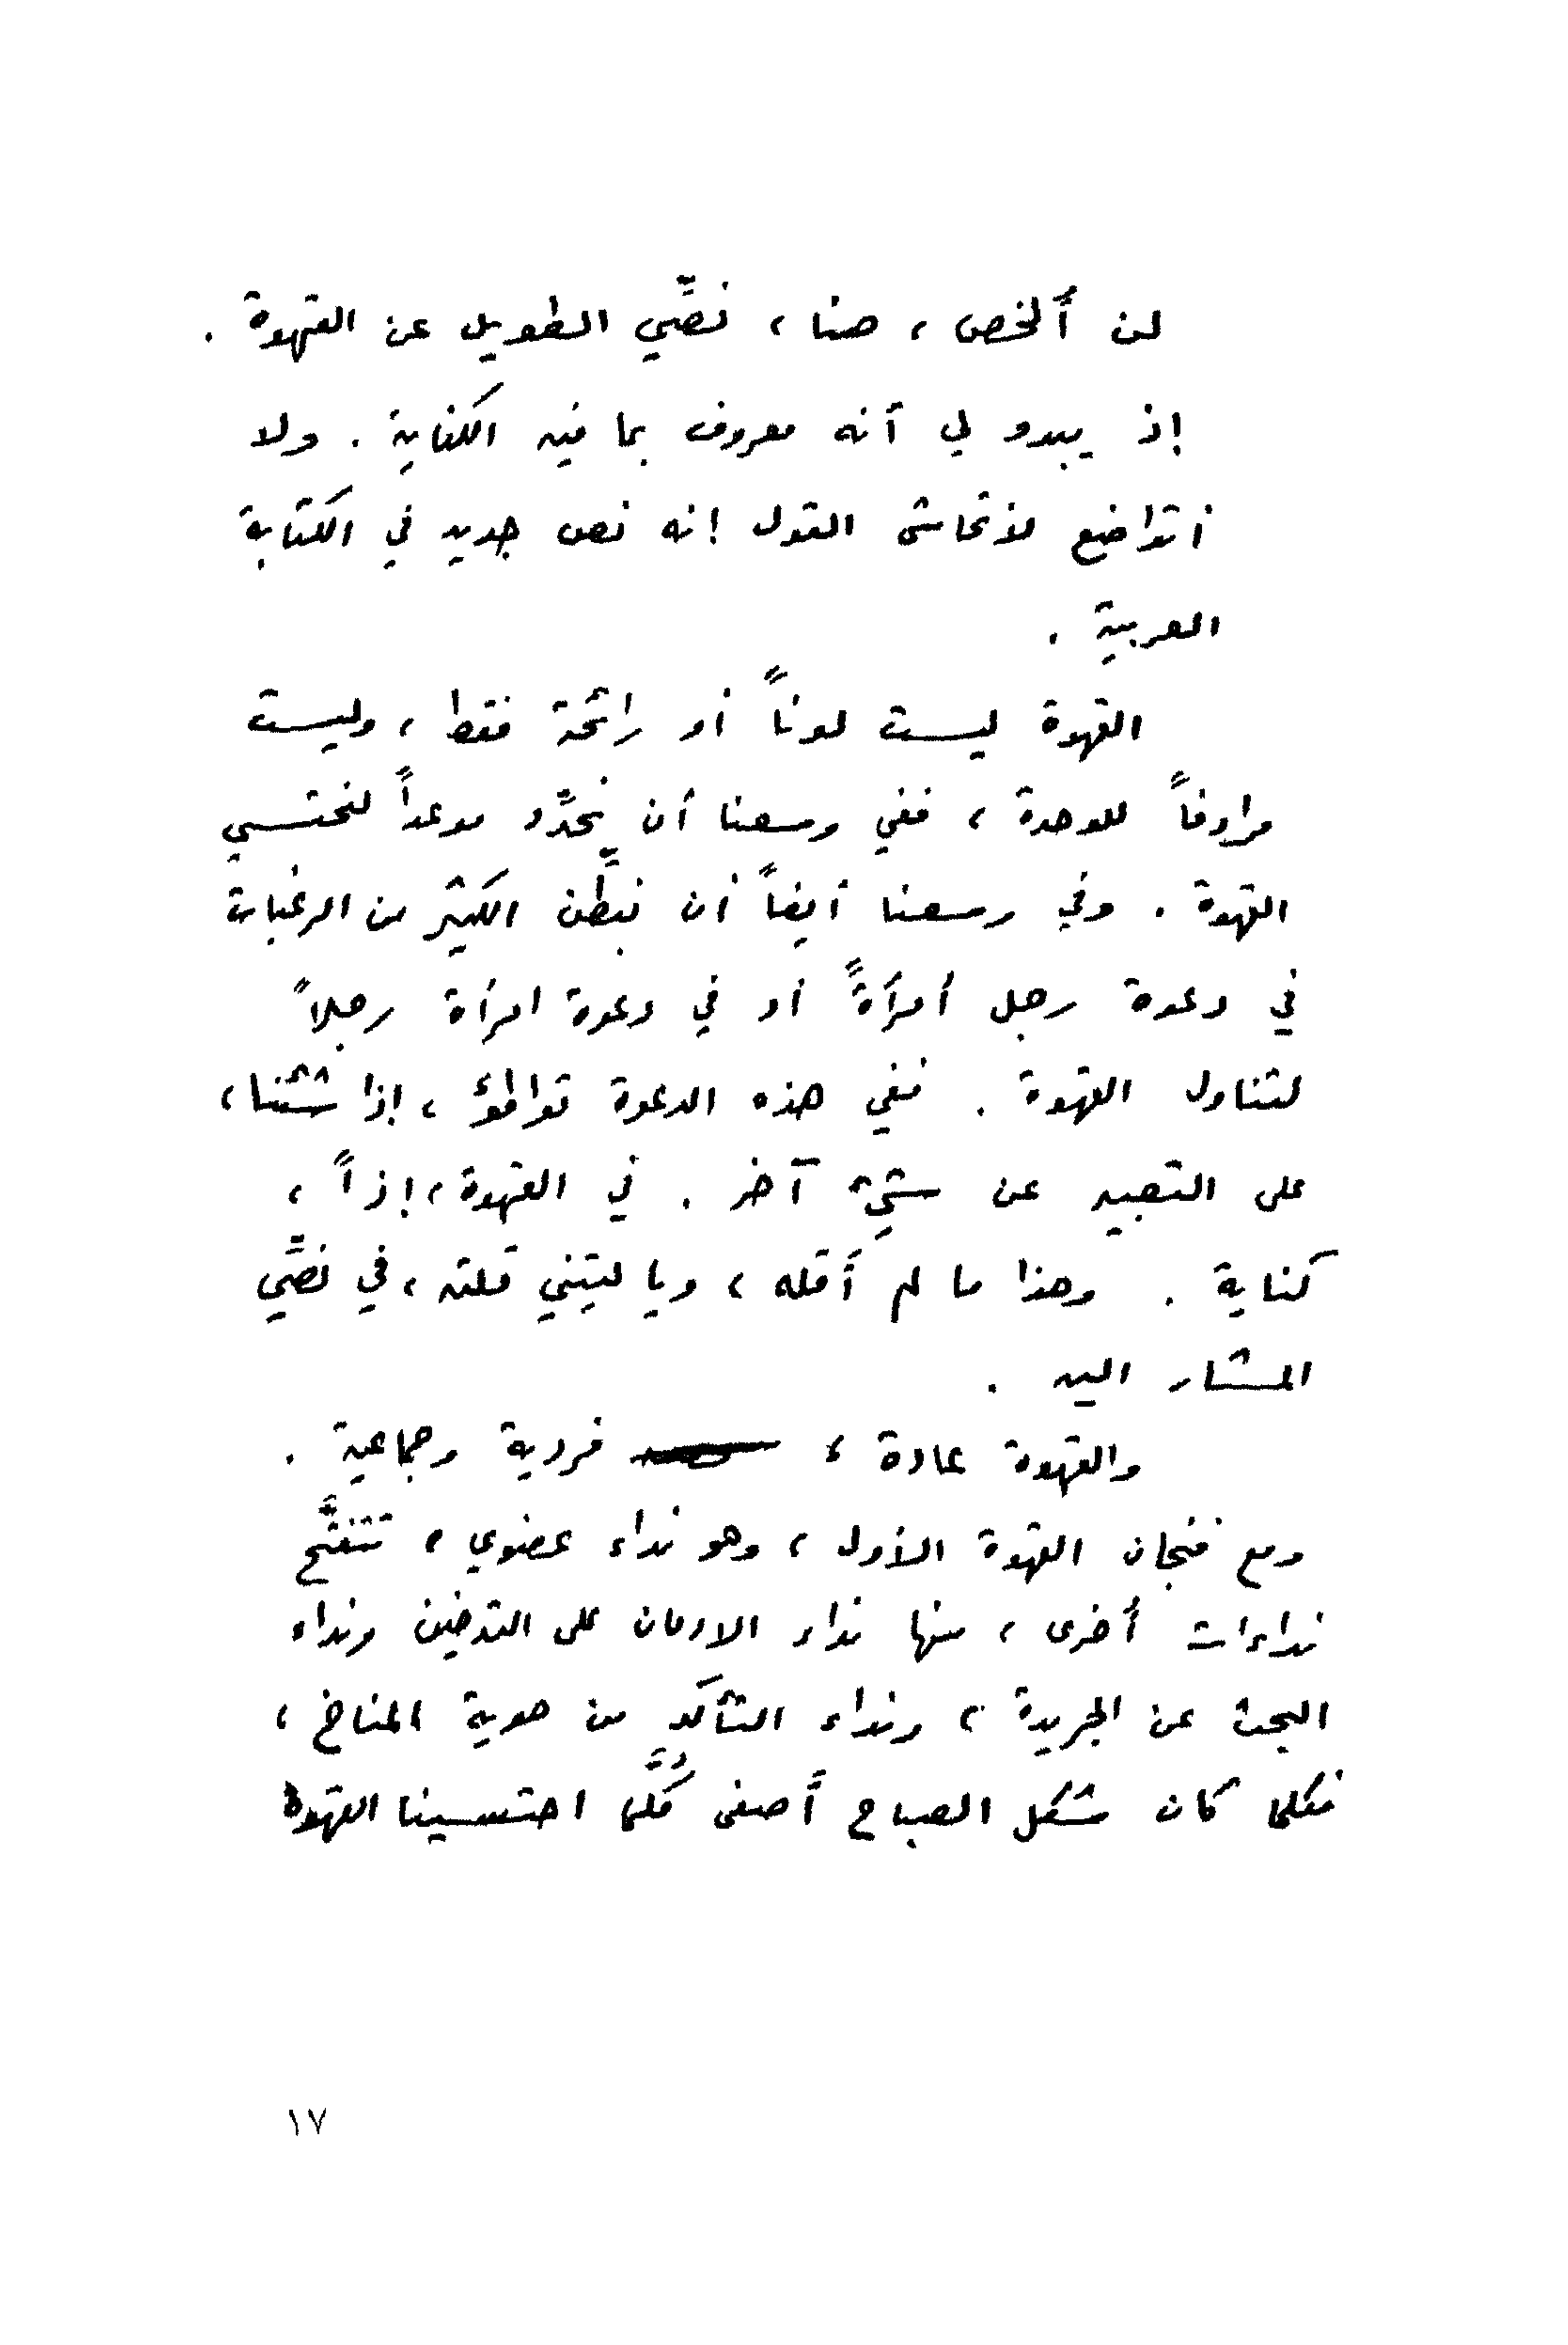 لن أُلخص ، هنا ، نصِّي الطويل عن القهوة .
إذ يبدو لي أنه معروف بما فيه الكفاية . ولا
أتواضع لأتحاشى القول إنه نص جديد في الكتابة
العربية .
القهوة ليست لوناً أو رائحة فقط ، وليست
مرادفاً للوحدة ، ففي وسعنا أن نحدِّد موعداً لنحتسي
القهوة . وفي وسعنا أيضاً أن نبطِّن الكثير من الرغبات
في دعوة رجل أمرأةً أو في دعوة امرأة رجلاً
لتناول القهوة . ففي هذه الدعوة تواطؤ ، إذا شئنا ،
على التعبير عن شيء آخر . في القهوة ، إذاً ،
كناية . وهذا ما لم أقله ، ويا ليتني قلته ، في نصِّي
المشار اليه .
والقهوة عادة ، فردية وجماعية .
ومع فنجان القهوة الأول ، وهو نداء عضوي ، تتفتَّح
نداءات أُخرى ، منها نداء الادمان على التدخين ونداء
البحث عن الجريدة ، ونداء التأكد من هوية المناخ ،
فكلما كان شكل الصباح أَصفى كُلَّما احتسينا القهوة
١٧